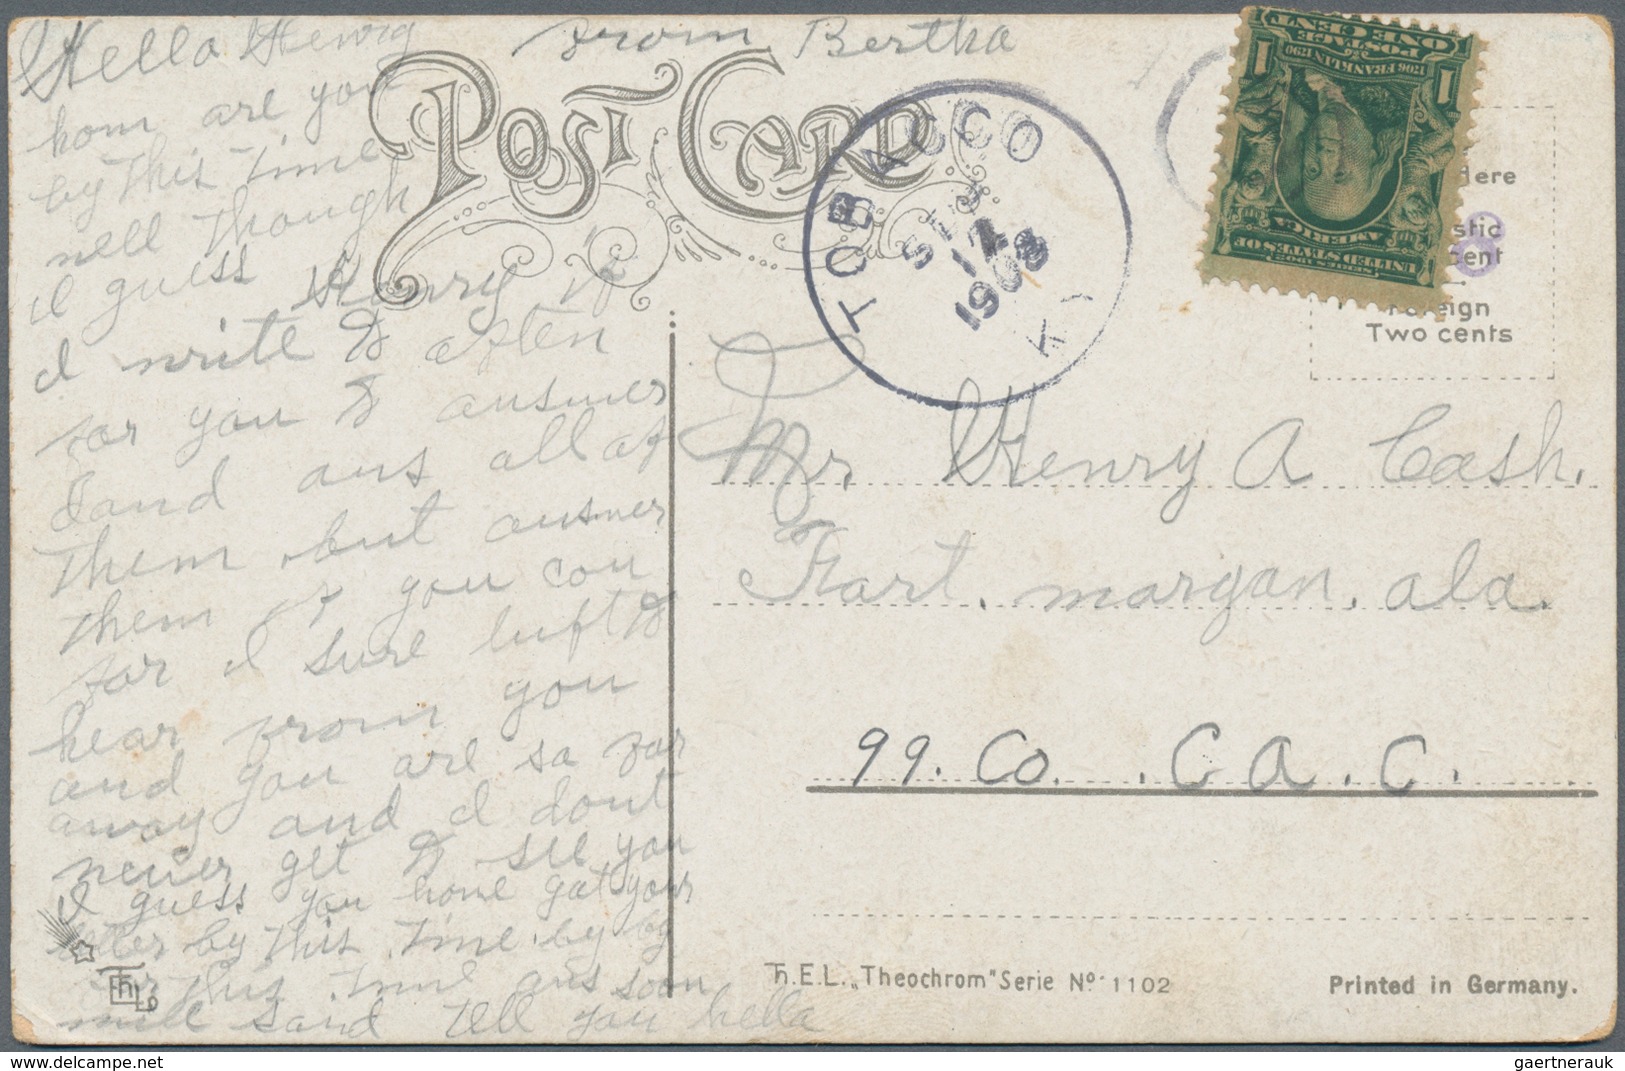 from Bertha
Hello Henry
how are you
by this time
well though
I guess Henry if
I write to often
for you to answer
and ans all of
them but answer
them if you con
for I sure luft to
hear from you
and you are so far
away and I dont
never get to see you
I guess you have gat your
letter by this time. by by
for this time ans soon
mill said tell you hella
POST CARD
TOBACCO
SEP
12
1908
KY
ONE CENT
POSTAGE
1706 FRANKLIN 1790
1 1
SERIES 1902
UNITED STATES OF
AMERICA
Here
stic
cent
Foreign
Two cents
8
Mr Henry A Cash.
Fort. morgan. ala.
99. Co. . C A. C.
Th.E.L. „Theochrom" Serie No. 1102
Printed in Germany.
ThLo
gaertnerauk